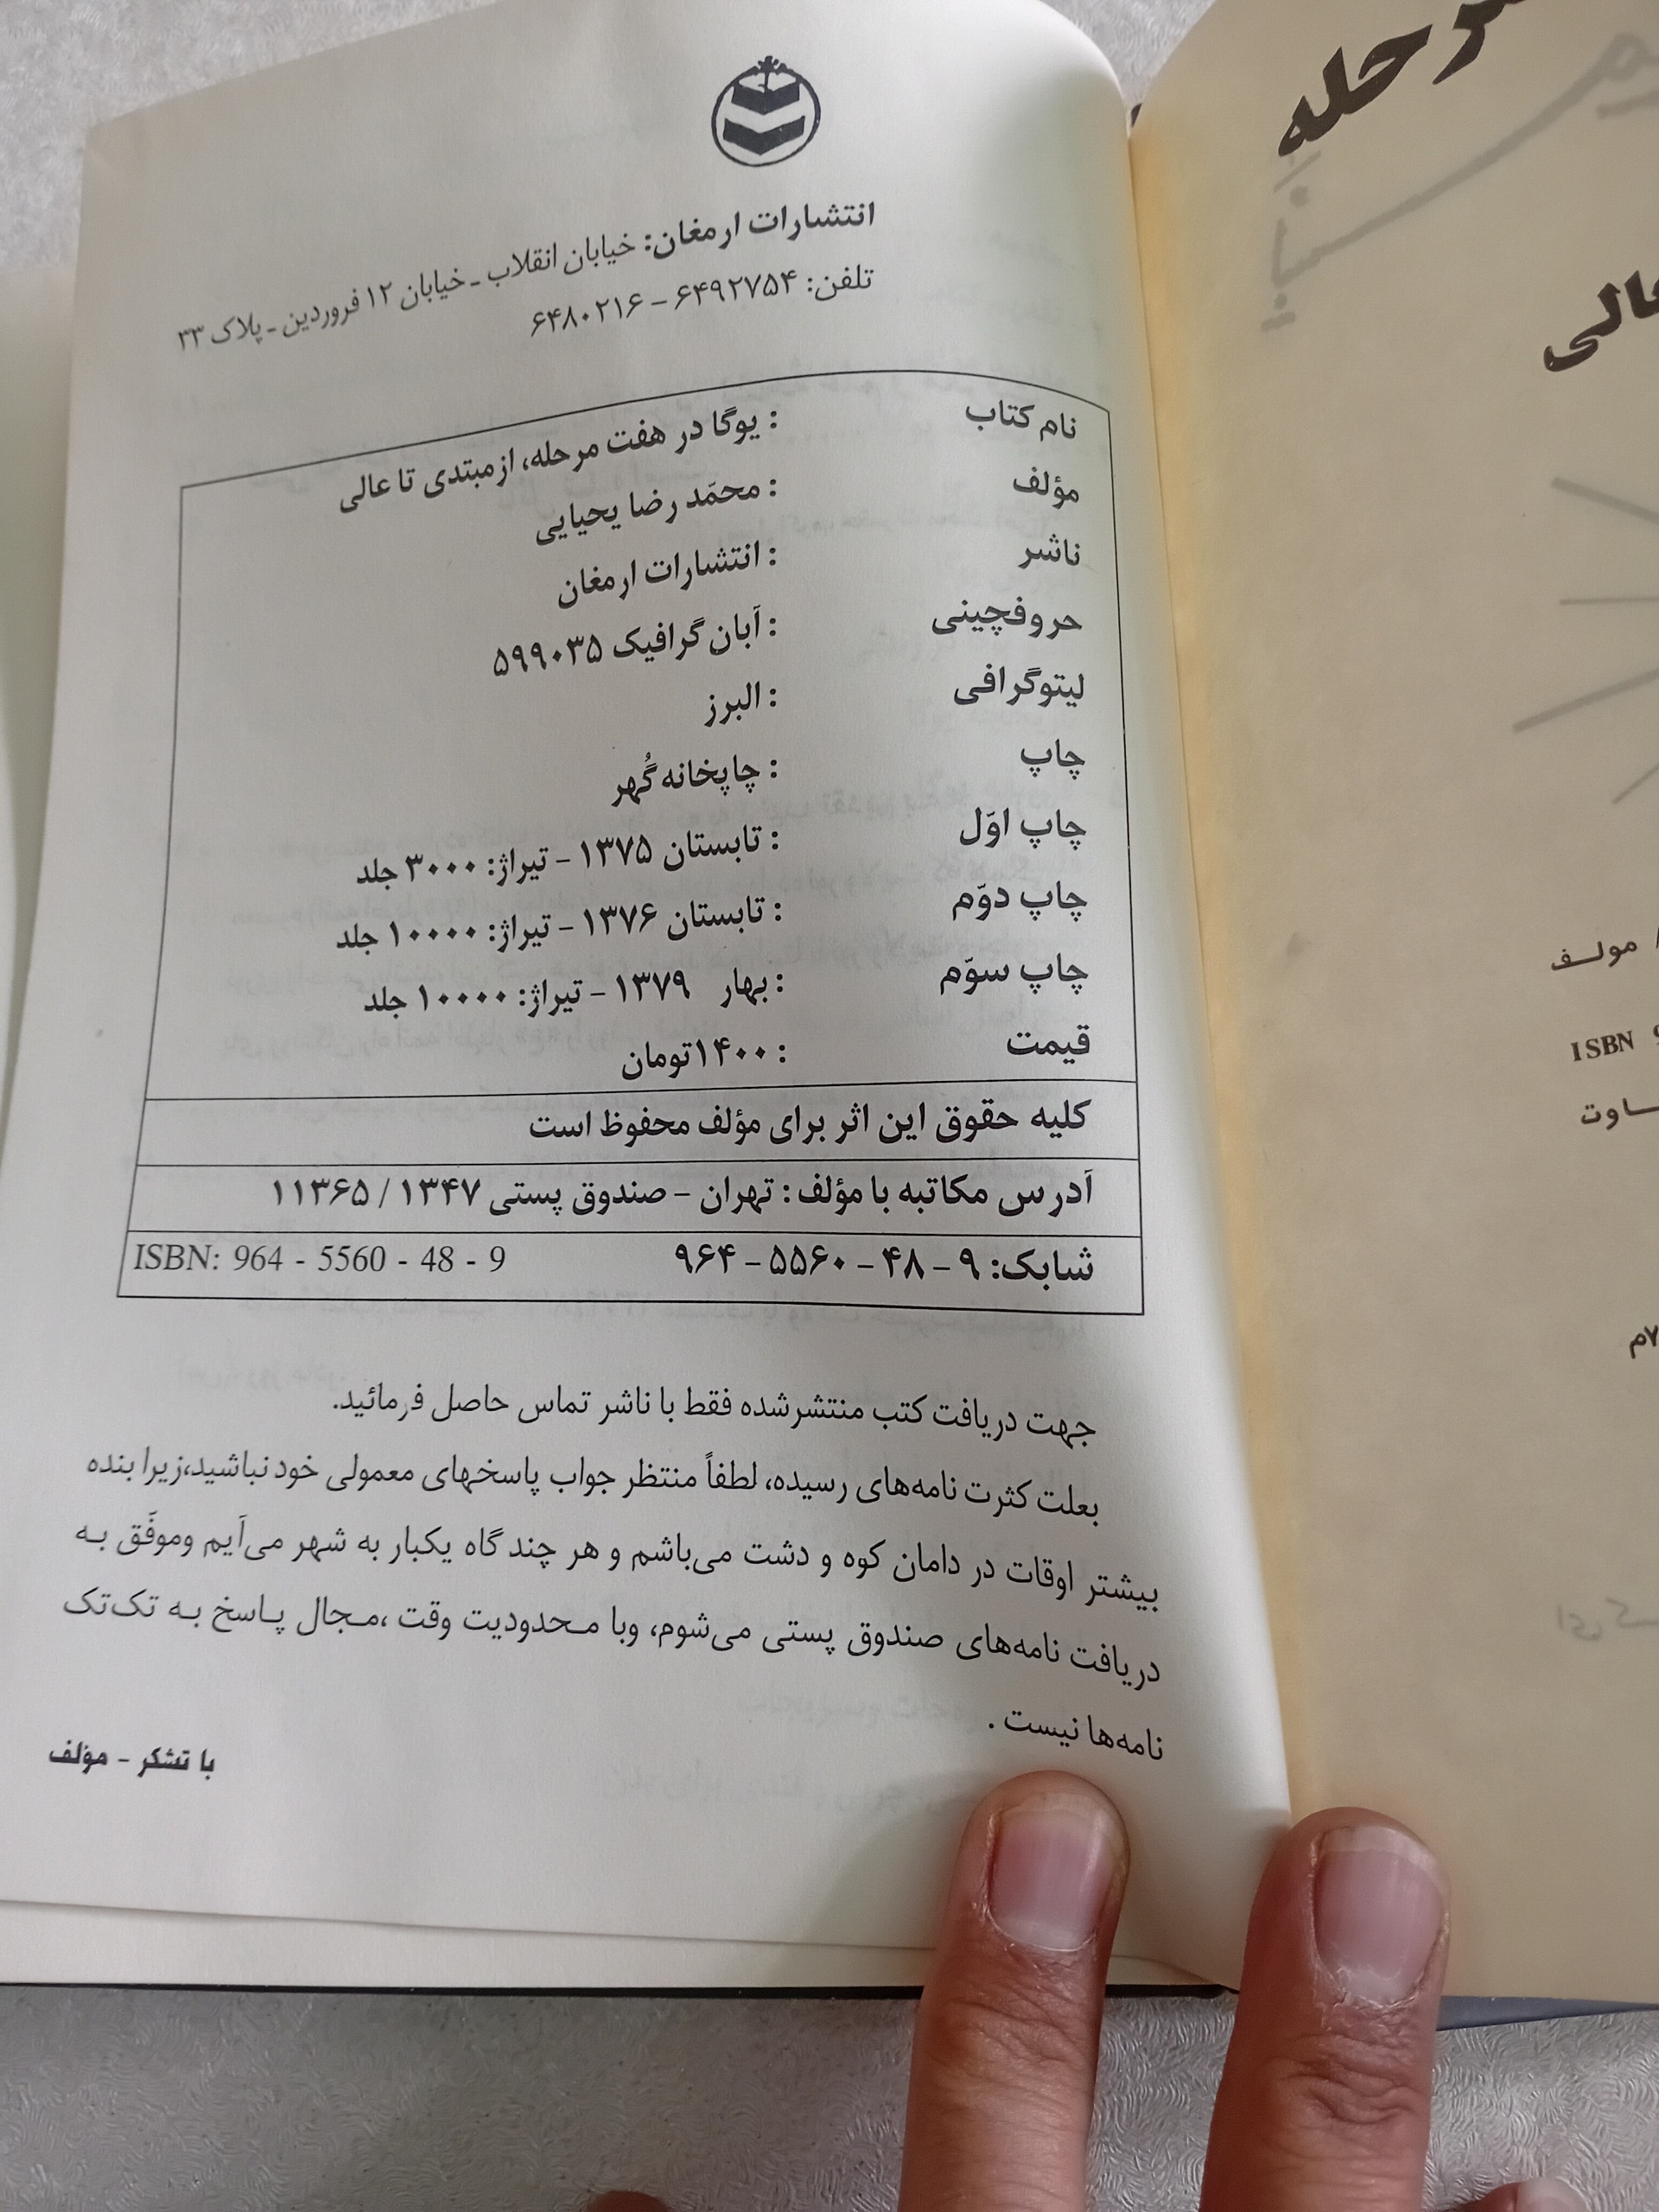 انتشارات ارمغان: خیابان انقلاب ـ خیابان ۱۲ فروردین ـ پلاک ۳۳
تلفن: ۶۴۹۲۷۵۴ – ۶۴۸۰۲۱۶
نام کتاب : یوگا در هفت مرحله، از مبتدی تا عالی
مؤلف : محمّد رضا یحیایی
ناشر : انتشارات ارمغان
حروفچینی : آبان گرافیک ۵۹۹۰۳۵
لیتوگرافی : البرز
چاپ : چاپخانه گُهر
چاپ اوّل : تابستان ۱۳۷۵ – تیراژ: ۳۰۰۰ جلد
چاپ دوّم : تابستان ۱۳۷۶ – تیراژ: ۱۰۰۰۰ جلد
چاپ سوّم : بهار ۱۳۷۹ – تیراژ: ۱۰۰۰۰ جلد
قیمت : ۱۴۰۰ تومان
کلیه حقوق این اثر برای مؤلف محفوظ است
آدرس مکاتبه با مؤلف: تهران – صندوق پستی ۱۳۴۷ / ۱۱۳۶۵
شابک: ۹ – ۴۸ – ۵۵۶۰ – ۹۶۴ ISBN: 964 - 5560 - 48 - 9
جهت دریافت کتب منتشرشده فقط با ناشر تماس حاصل فرمائید.
بعلت کثرت نامه‌های رسیده، لطفاً منتظر جواب پاسخهای معمولی خود نباشید،زیرا بنده
بیشتر اوقات در دامان کوه و دشت می‌باشم و هر چند گاه یکبار به شهر می‌آیم وموفّق به
دریافت نامه‌های صندوق پستی می‌شوم، وبا محدودیت وقت ،مجال پاسخ به تک‌تک
نامه‌ها نیست .
با تشکر – مؤلف
مرحله
عالی
/ مولف
ISBN 9